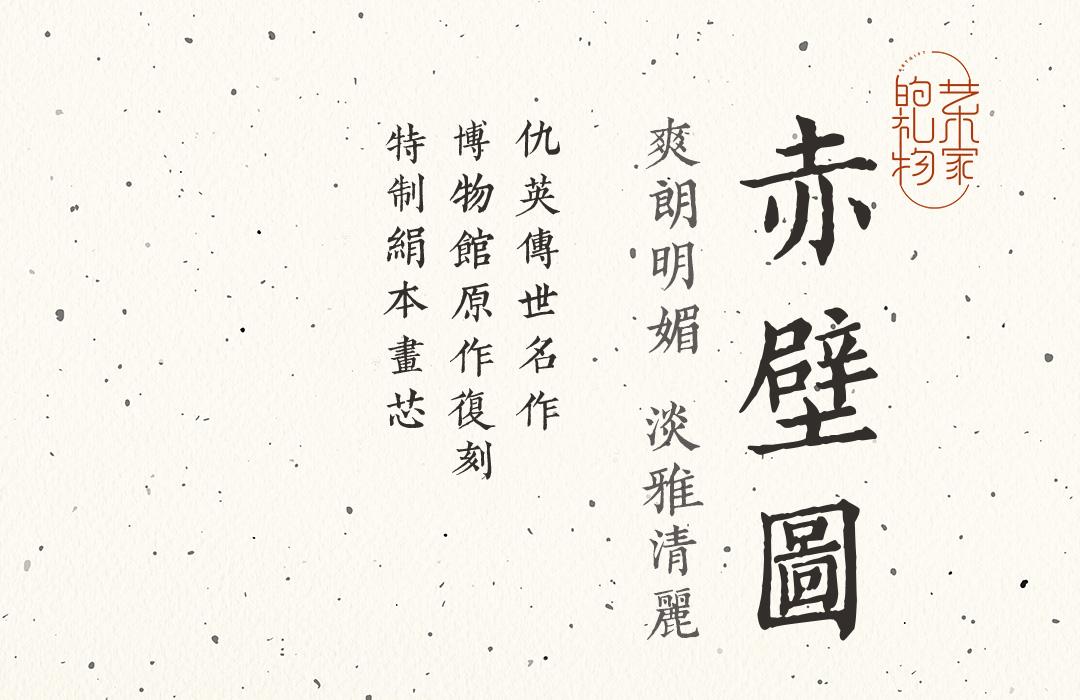 艺术家
的礼物
赤壁圖
爽朗明媚 淡雅清麗
仇英傳世名作
博物館原作復刻
特制絹本畫芯